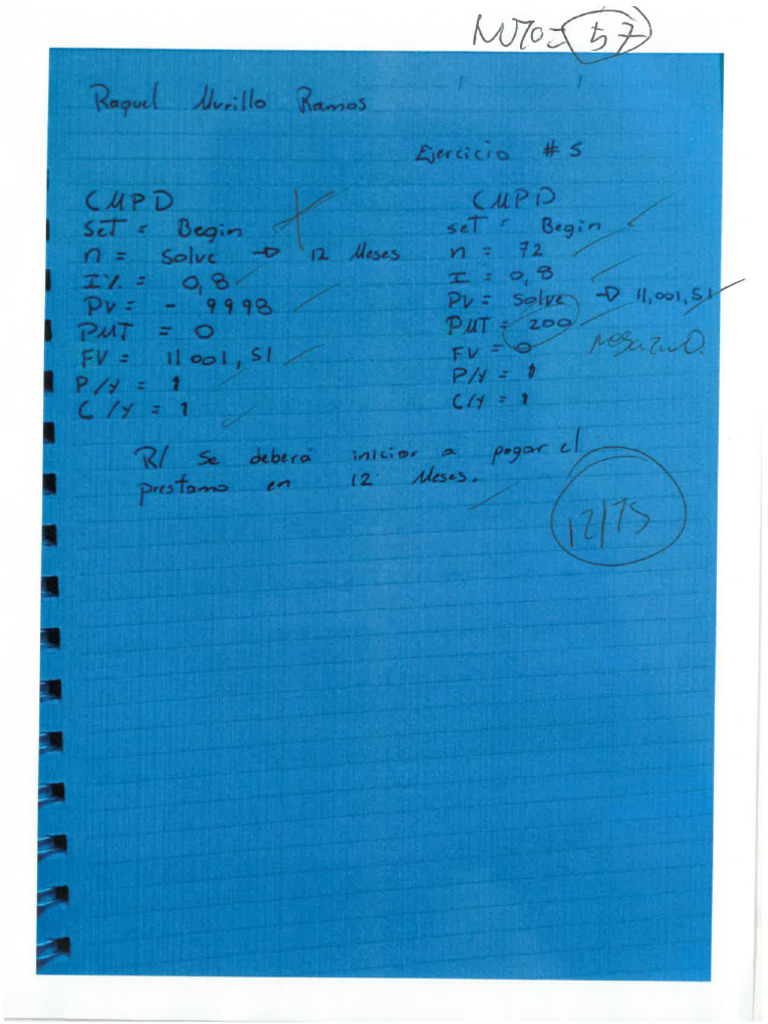 NOTA= 57
Raquel Murillo Ramos
Ejercicio # 5
CMPD
Set = Begin
n = Solve → 12 Meses
I% = 0,8
PV = - 9998
PMT = 0
FV = 11 001, 51
P/Y = 1
C/Y = 1
CMPD
set = Begin
n = 72
I = 0,8
PV = Solve → 11,001,51
PMT = 200
FV = 0
P/Y = 1
C/Y = 1
R/ Se deberá iniciar a pagar el
prestamo en 12 Meses.
12/15